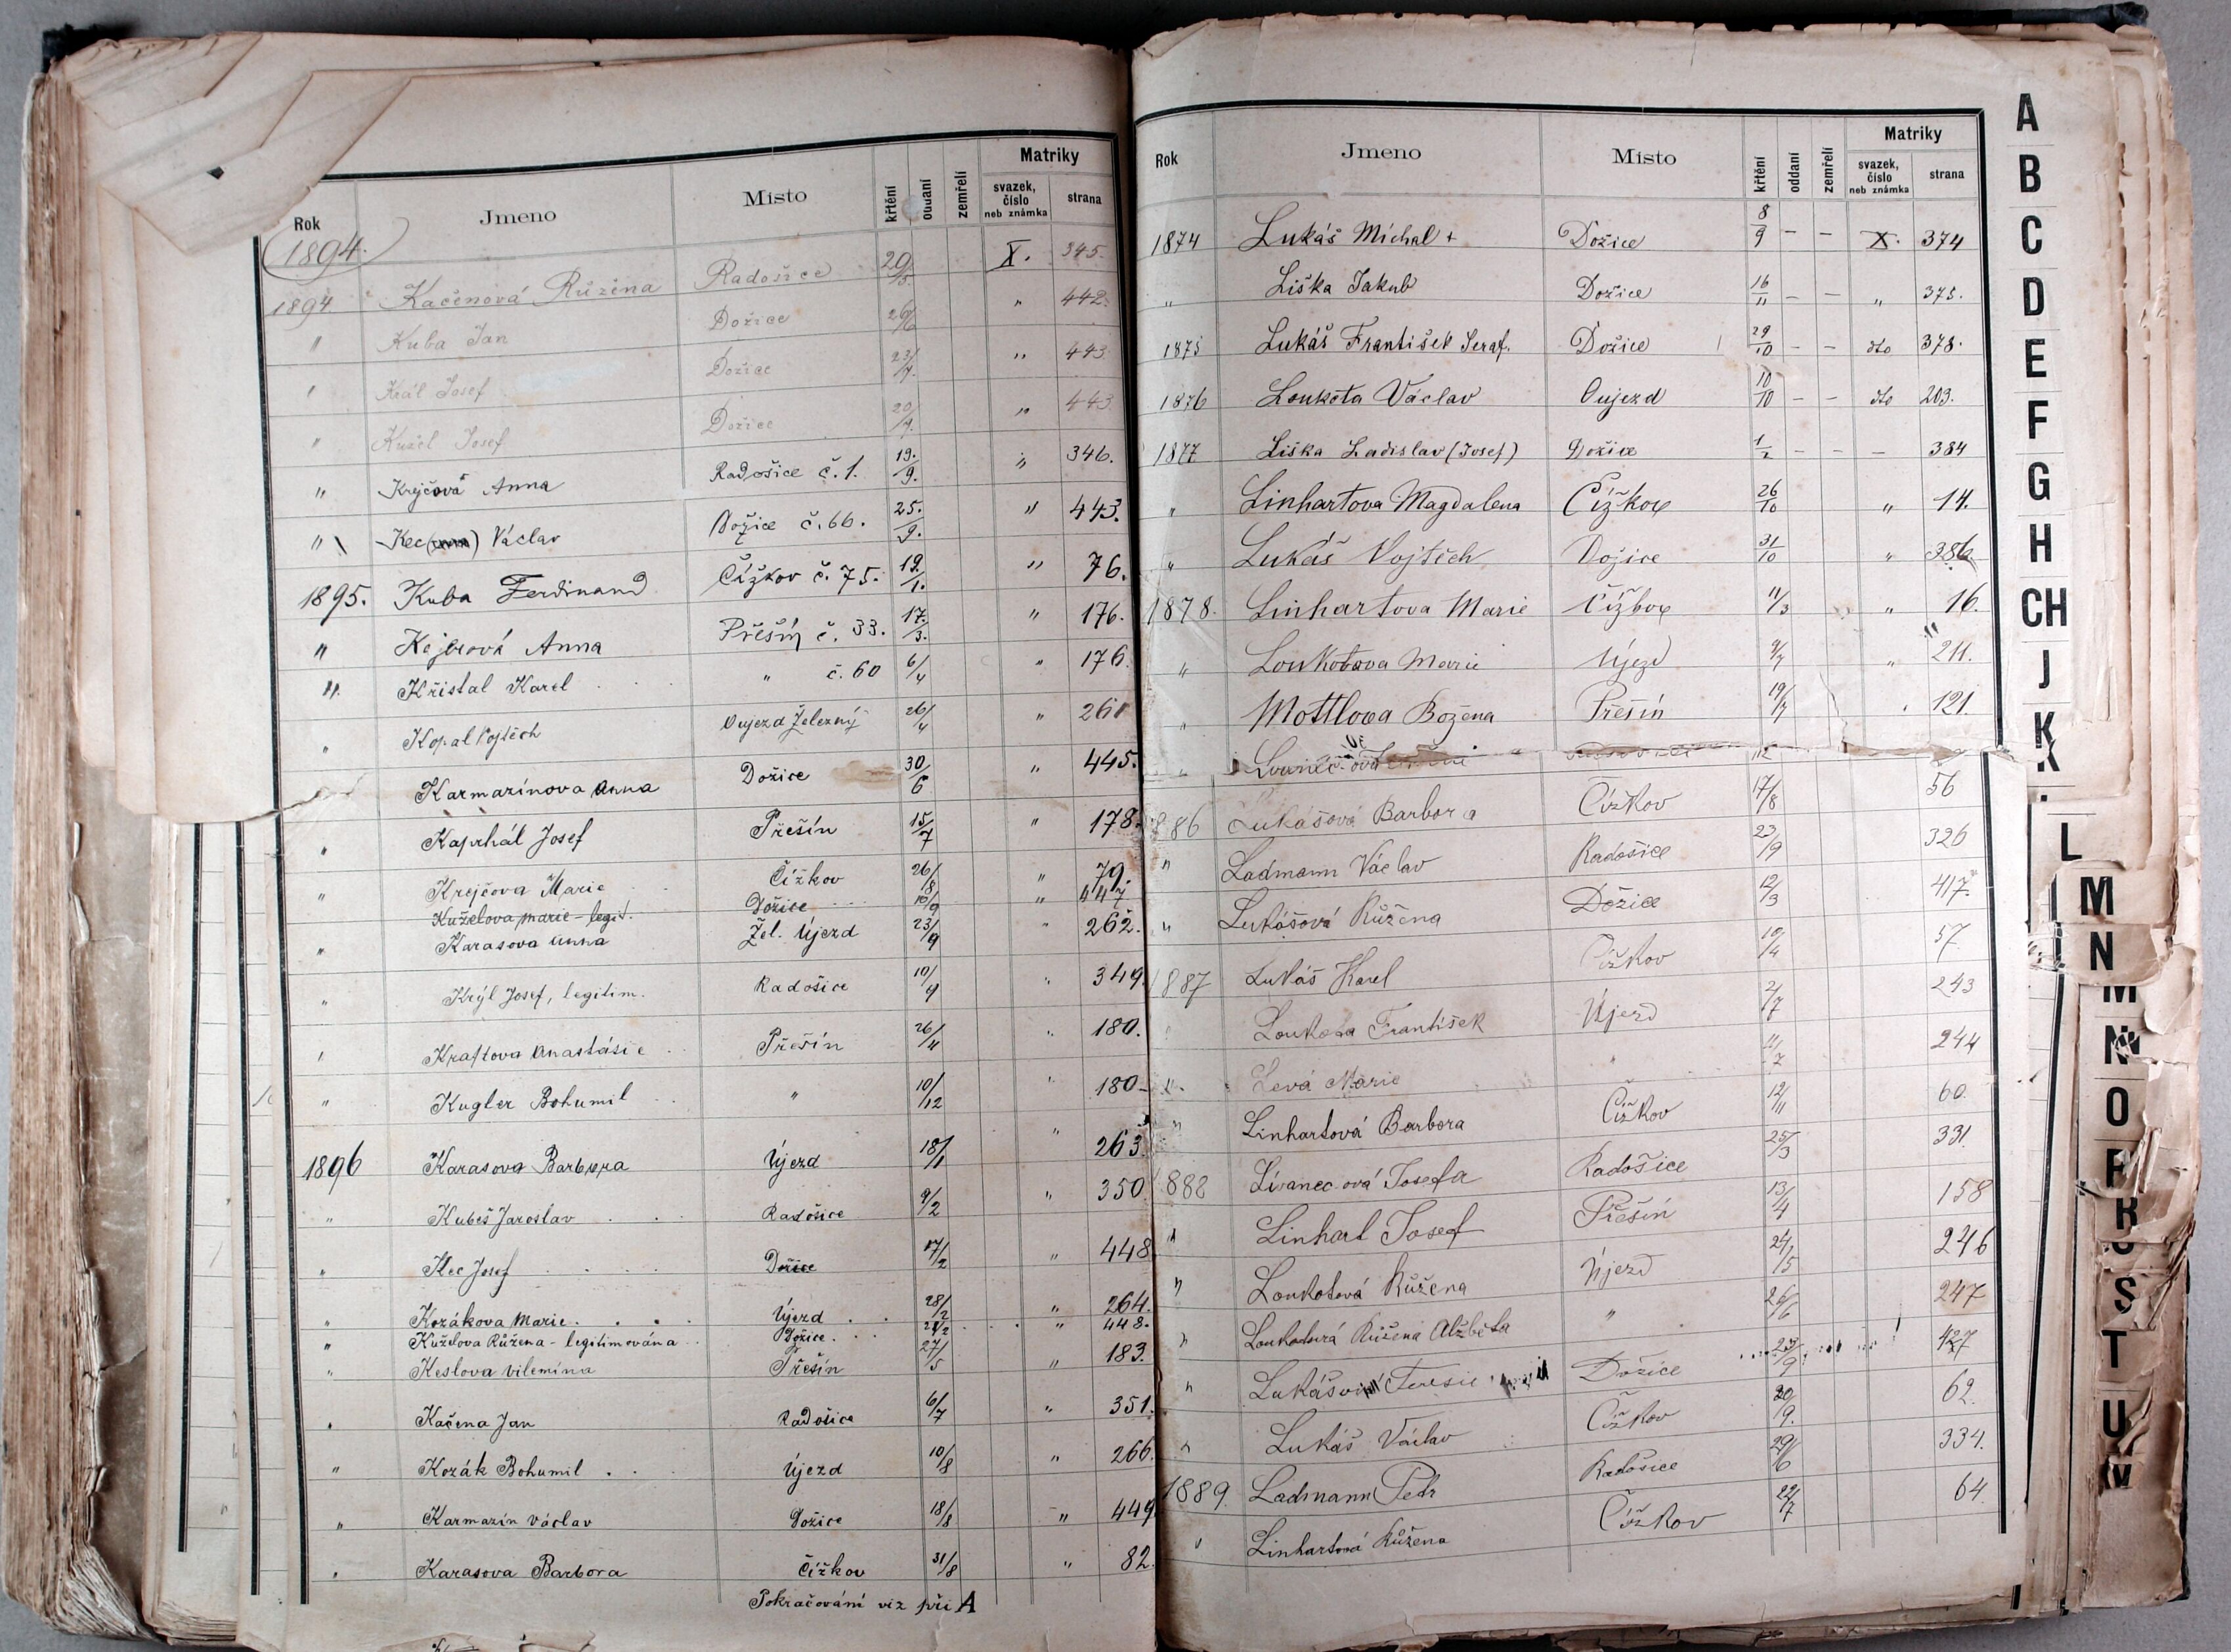 Rok Jmeno Místo křtění oddaní zemřelí Matriky svazek, číslo neb známka strana
1894.
1894 Kačenová Růžena Radošice 20/5. X. 345.
" Kuba Jan Dožice 26/6 " 442.
" Král Josef Dožice 23/7. " 443.
" Kužel Josef Dožice 20/7. " 443
" Krejčová Anna Radošice č. 1. 19./9. " 346.
" Kec Václav Dožice č. 66. 25./9. " 443.
1895. Kuba Ferdinand Čížkov č. 75. 19./1. " 76.
" Kejbrová Anna Přešín č. 33. 17./3. " 176.
" Křistal Karel " č. 60 6/4 " 176.
" Kopal Vojtěch Oujezd Železný 26/4 " 261
Karmarínova Anna Dožice 30/6 " 445.
" Kaprhál Josef Přešín 15/7 " 178.
" Krejčova Marie Čížkov 26/8 " 79.
Kuželova Marie - legit. Dožice 16/9 " 447
" Karasova Anna Žel. Újezd 23/9 " 262.
" Krýl Josef, legitim. Radošice 10/9 " 349.
" Kraftova Anastásie Přešín 26/11 " 180.
" Kugler Bohumil " 10/12 " 180-
1896 Karasova Barbora Újezd 18/1 " 263
" Kubeš Jaroslav Radošice 9/2 " 350
" Kec Josef Dožice 17/2 " 448
" Kozákova Marie Újezd 28/2 " 264.
" Kuželova Růžena - legitimována Dožice 29/2 " 448.
" Keslova Vilemína Přešín 27/5 " 183.
" Kačena Jan Radošice 6/7 " 351.
" Kozák Bohumil Újezd 10/8 " 266.
" Karmazín Václav Dožice 18/8 " 449
" Karasova Barbora Čížkov 31/8 " 82.
Pokračování viz při A
Rok Jmeno Místo křtění oddaní zemřelí Matriky svazek, číslo neb známka strana
1874 Lukáš Michal + Dožice 8/9 - - X. 374
" Liška Jakub Dožice 16/11 - - " 375.
1875 Lukáš František Seraf. Dožice 29/10 - - dto 378.
1876 Loukota Václav Oujezd 10/10 - - dto 203.
1877 Liška Ladislav (Josef) Dožice 1/2 - - - 384
" Linhartova Magdalena Čížkov 26/10 " 14.
" Lukáš Vojtěch Dožice 31/10 " 386.
1878. Linhartova Marie Čížkov 11/3 " 16.
" Loukotova Marie Újezd 9/7 " 211.
" Mottlova Božena Přešín 19/7 " 121.
886 Lukášová Barbora Čížkov 17/8 56
" Ladmann Václav Radošice 23/9 326
" Lukášová Růžena Dožice 12/3 417.
1887 Lukáš Karel Čížkov 19/4 57
Loukota František Újezd 2/7 243
" Levá Marie " 11/7 244
" Linhartová Barbora Čížkov 12/11 60.
888 Lívanecová Josefa Radošice 25/3 331
" Linhart Josef Přešín 13/4 158
" Loukotová Růžena Újezd 24/5 246
" Loukotová Růžena Alžběta " 26/6 247
" Lukášová Teresie Dožice 23/9 427
" Lukáš Václav Čížkov 20/9. 62.
1889. Ladmann Petr Radošice 29/6 334.
" Linhartová Růžena Čížkov 22/7 64.
A
B
C
D
E
F
G
H
CH
J
K
L
M
N
M
N
O
P
R
S
T
U